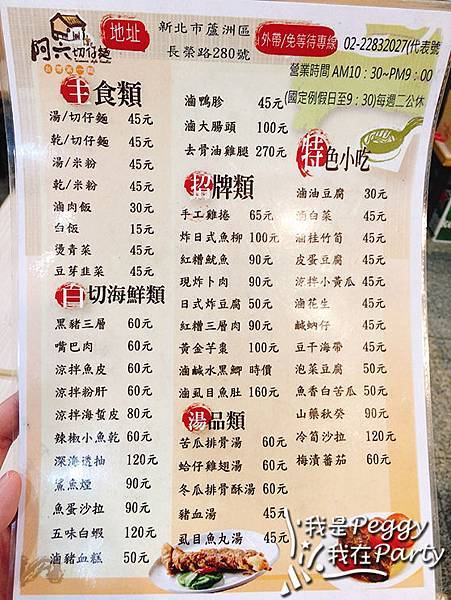 阿六切仔麵
地址
新北市蘆洲區
長榮路280號
外帶/免等待專線
02-22832027(代表號
營業時間 AM10:30~PM9:00
(國定例假日至9:30)每週二公休
主食類
湯/切仔麵 45元
乾/切仔麵 45元
湯/米粉 45元
乾/米粉 45元
滷肉飯 30元
白飯 15元
燙青菜 45元
豆芽韭菜 45元
白切海鮮類
黑豬三層 60元
嘴巴肉 60元
涼拌魚皮 60元
涼拌粉肝 60元
涼拌海蜇皮 80元
辣椒小魚乾 60元
深海透抽 120元
鯊魚煙 90元
魚蛋沙拉 90元
五味白蝦 120元
滷豬血糕 50元
滷鴨胗 45元
滷大腸頭 100元
去骨油雞腿 270元
招牌類
手工雞捲 65元
炸日式魚柳 100元
紅糟魷魚 90元
現炸卜肉 90元
日式炸豆腐 50元
紅糟三層肉 90元
黃金芋棗 100元
滷鹹水黑鯽 時價
滷虱目魚肚 160元
湯品類
苦瓜排骨湯 60元
蛤仔雞翅湯 60元
冬瓜排骨酥湯 60元
豬血湯 45元
虱目魚丸湯 45元
特色小吃
滷油豆腐 30元
滷白菜 45元
滷桂竹筍 45元
皮蛋豆腐 45元
涼拌小黃瓜 45元
滷花生 45元
鹹蚋仔 45元
豆干海帶 45元
泡菜豆腐 50元
魚香白苦瓜 50元
山藥秋葵 90元
冷筍沙拉 120元
梅漬蕃茄 60元
我是Peggy
我在Party